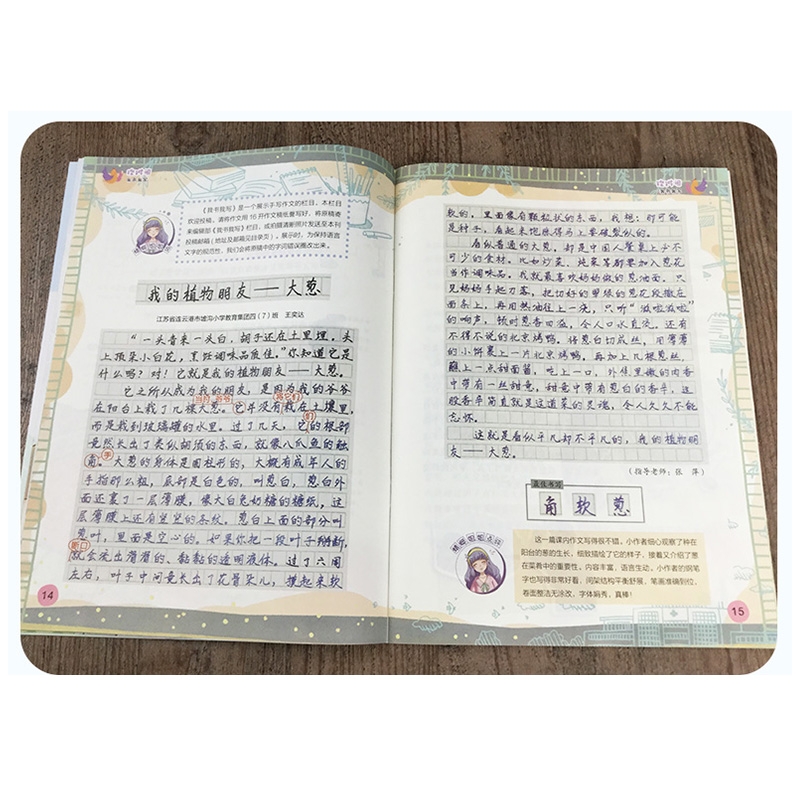 《我书我写》是一个展示手写作文的栏目，本栏目
欢迎投稿，请将作文用16开作文稿纸誊写好，将原稿寄
来编辑部《我书我写》栏目，或拍摄清晰照片发送至本刊
投稿邮箱(地址及邮箱见目录页)。展示时，为保持语言
文字的规范性，我们会将原稿中的字词错误圈改出来。
我的植物朋友——大葱
江苏省连云港市墟沟小学教育集团四(7)班 王奕达
“一头青来一头白，胡子还在土里埋。头
上顶朵小白花，烹饪调味品质佳。”你知道它是
什么吗？对！它就是我的植物朋友——大葱。
它之所以成为我的朋友，是因为我的爷爷
当时 爷爷 将它们
在阳台上栽了几棵大葱。它并没有栽在土壤里，
而是栽到玻璃罐的水里。过了几天，它的根部
们
竟然长出了类似胡须的东西，就像八爪鱼的触
手
角。大葱的身体是圆柱形的，大概有成年人的
手指那么粗，底部是白色的，叫葱白，葱白外
面还裹了一层薄膜，像大白兔奶糖的糖纸，这
层薄膜上还有竖竖的条纹。葱白上面的部分叫
葱叶，里面是空心的。如果你把一段叶子掰断，
断口
就会流出滑滑的、黏黏的透明液体。过了六周
左右，叶子中间竟长出了花骨朵儿，摸起来软
14
软的，里面像有颗粒状的东西，我想：那可能
是种子，看起来饱胀得马上要破裂似的。
看似普通的大葱，却是中国人餐桌上必不
可少的食材。比如炒菜、炖菜等都要加入葱花
当作调味品。我就最喜欢妈妈做的葱油面。只
见妈妈手起刀落，把切好的翠绿的葱花段撒在
面条上，再用热油往上一浇，只听“滋啦滋啦”
的响声，顿时葱香四溢，令人口水直流。还有
不得不说的北京烤鸭，将葱白切成丝，用薄薄
的小饼裹上一片北京烤鸭，再加上几根葱丝，
蘸上一点甜面酱，吃上一口，外焦里嫩的肉香
中带有一丝甜意，甜意中带有葱白的香辛，这
股香辛简直就是这道菜的灵魂，令人久久不能
忘怀。
这就是看似平凡却不平凡的，我的植物朋
友——大葱。
(指导老师：张 萍)
最佳书写
角 软 葱
糖糖姐姐点评
这一篇课内作文写得很不错，小作者细心观察了种在
阳台的葱的生长，细致描绘了它的样子，接着又介绍了葱
在菜肴中的重要性，内容丰富，语言生动。小作者的钢笔
字也写得非常好看，间架结构平衡舒展，笔画准确到位，
卷面整洁无涂改，字体娟秀，真棒！
15